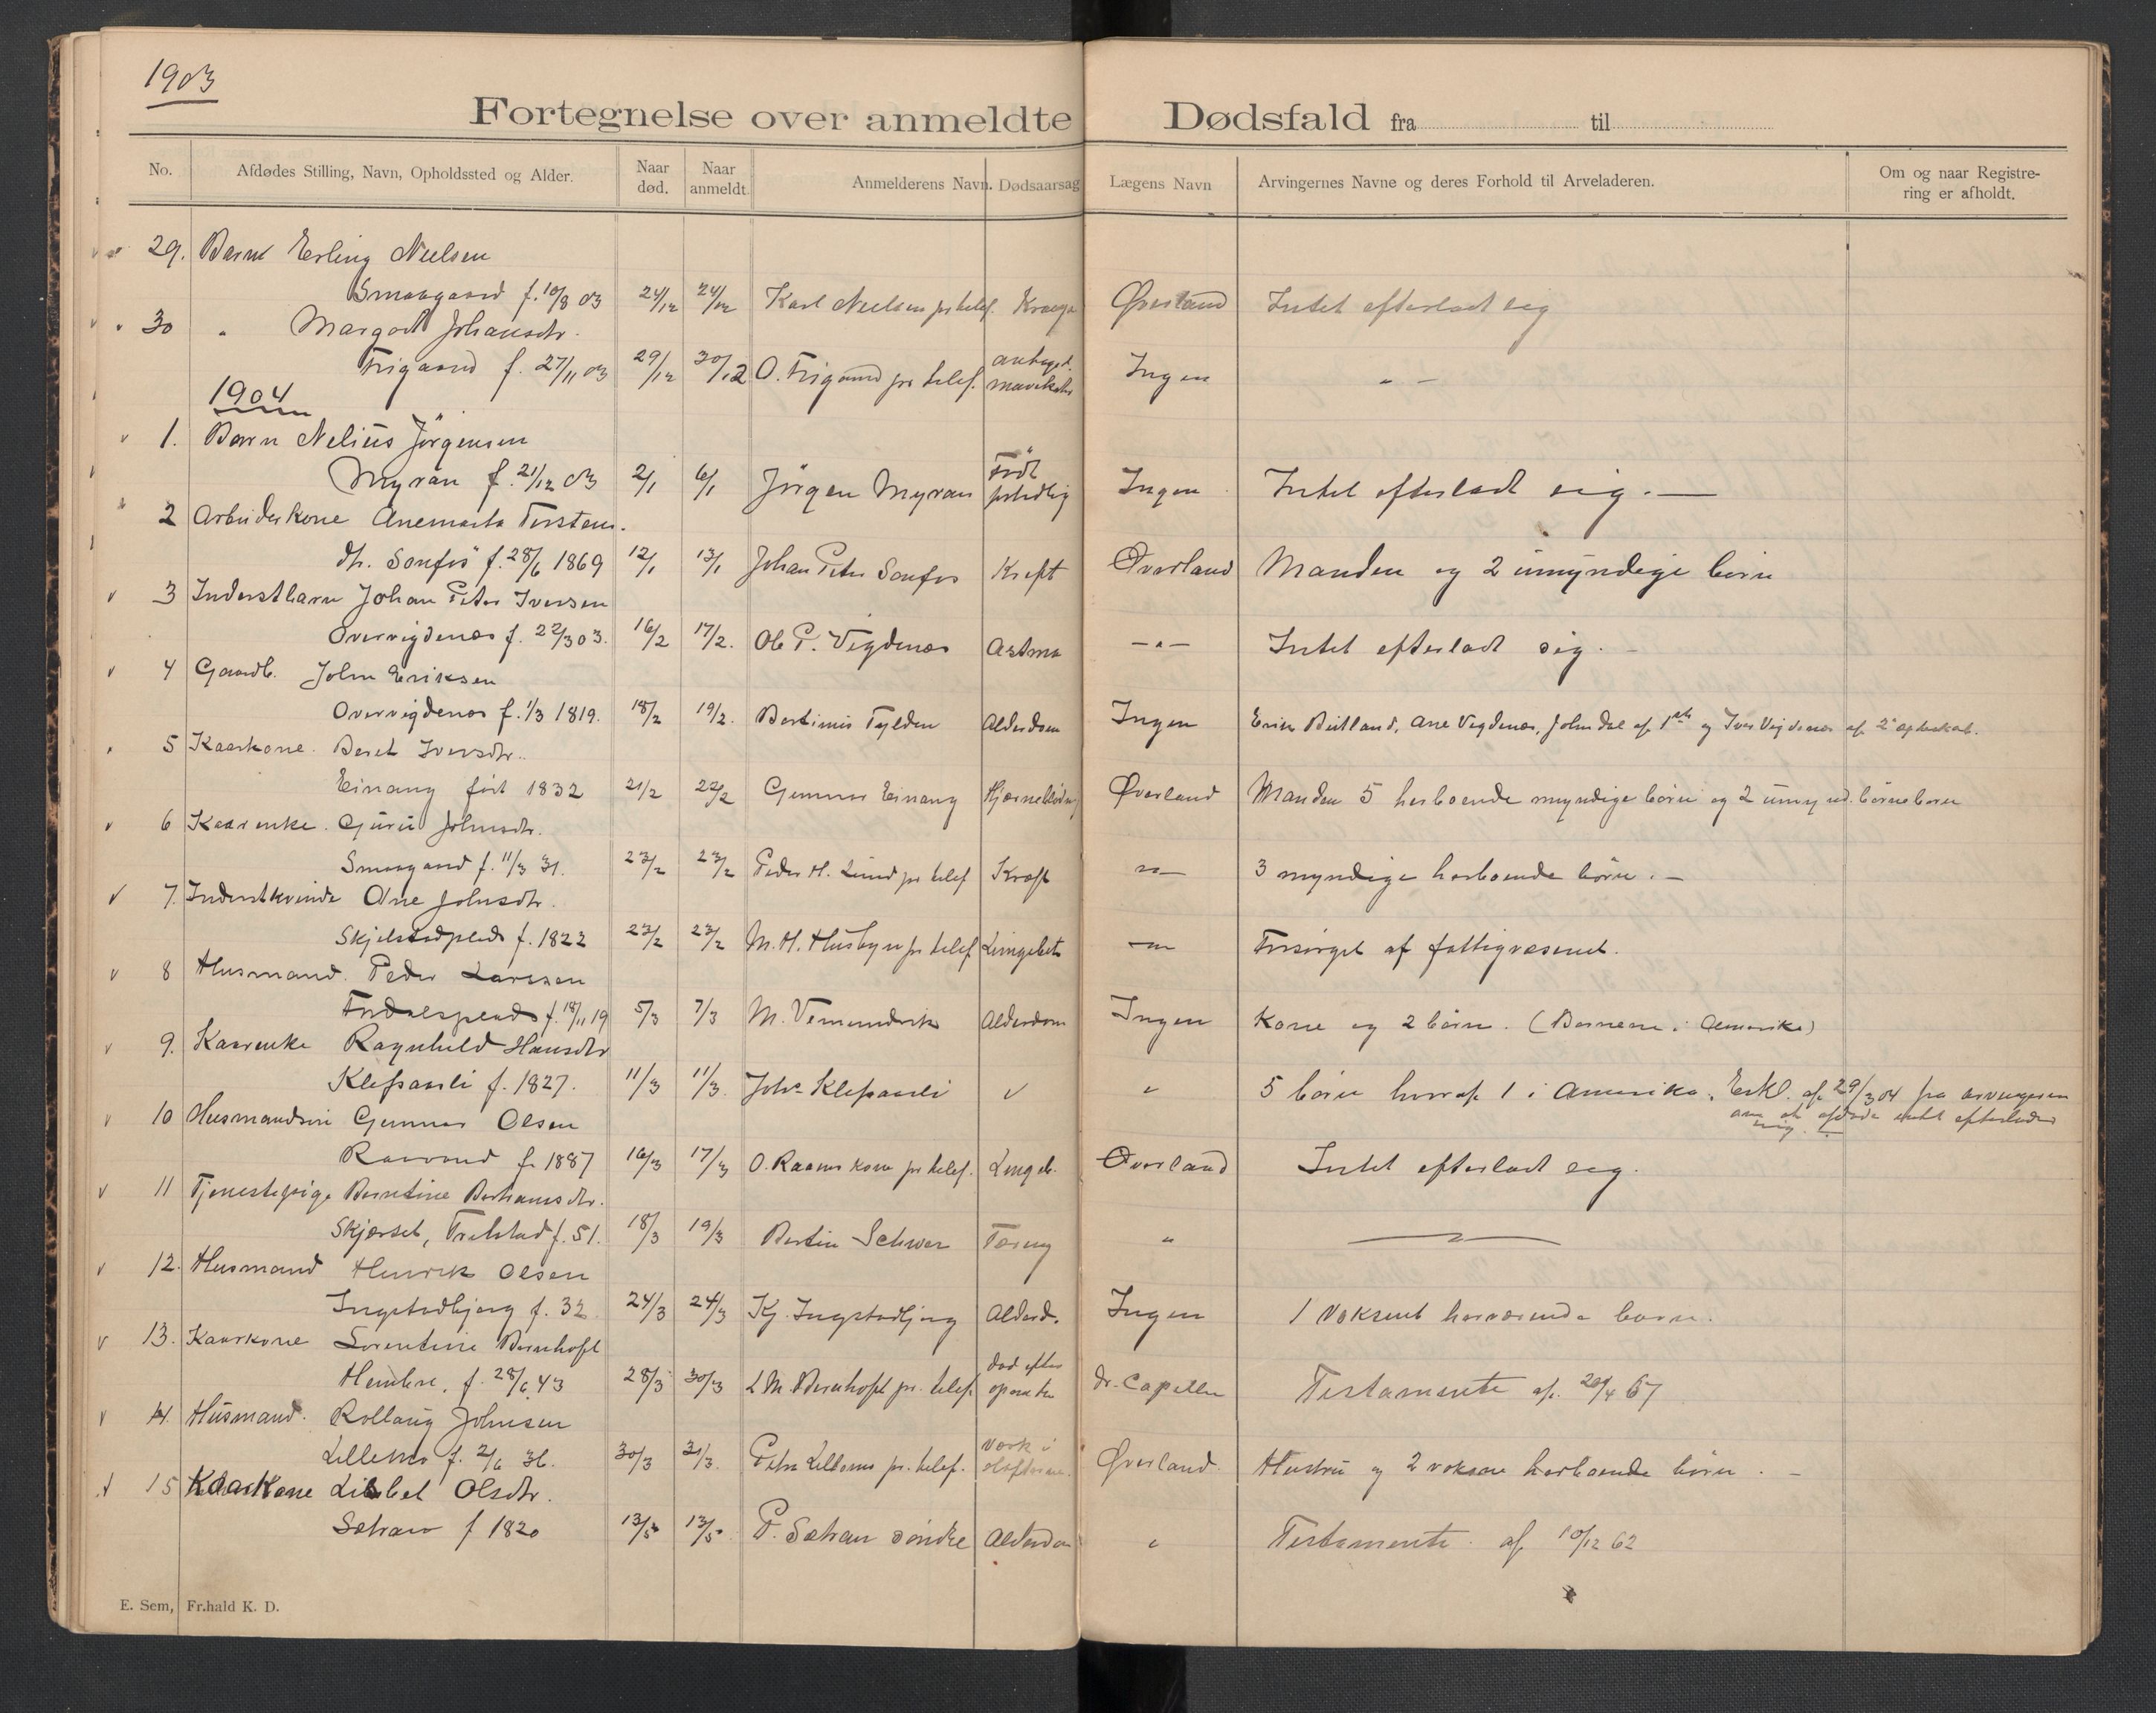 1903
Fortegnelse over anmeldte Dødsfald fra til
No. Afdødes Stilling, Navn, Opholdssted og Alder. Naar død. Naar anmeldt Anmelderens Navn. Dødsaarsag Lægens Navn Arvingernes Navne og deres Forhold til Arveladeren. Om og naar Registrering er afholdt.
29. Barn Erling Nielsen
Smaagaard f. 10/8 03 24/12 24/12 Karl Nielsen pr telef. Øverland Intet efterladt sig
30 " Margod Johansdtr.
f. 27/11 03 29/12 30/12 O. pr telef. Ingen " –
1904
1. Barn Nelius Jörgensen
Myran f. 21/12 03 2/1 6/1 Jörgen Myran Född Ingen Intet efterladt sig. —
2 Arbeiderkone Anemarta
dtr. Sonfos f. 28/6 1869 12/1 13/1 Johan Peter Sonfos Kreft Øverland Manden og 2 umyndige börn
3 Inderstbarn Johan Peter Iversen
Overvigdenes f. 22/3 03. 16/2 17/2. Ole P. Vigdenes Astma —"— Intet efterladt sig.
4 Gaardb. John Eriksen
Overvigdenes f. 1/3 1819. 18/2 19/2. Bertinus Fylden Alderdom Ingen Erik Beitland, Ane Vigdenes, John dal af 1ste og Iver Vigdenes af 2 egteskab.
5 Kaarkone. Beret Iversdtr.
Einang födt 1832 21/2 22/2 Gunnar Einang Hjerneblödn. Øverland Manden 5 herboende myndige börn og 2 umynd. börnebörn
6 Kaarenke. Guru Johnsdtr.
Smaagaard f. 11/3 31. 23/2 23/2 Peder H. Lund pr telef Kræft —"— 3 myndige herboende börn. –
7. Inderstkvinde Ane Johnsdtr.
Skjelstadplads f. 1822 23/2 23/2 M. H. Husbyn pr telef Lungebet. —"— Forsörget af fattigvæsenet.
8 Husmand. Peder Larssen
f. 18/11 19 5/3 7/3 M. Vemundvik Alderdom Ingen Kone og 2 börn. (Börnene i Amerika)
9. Kaarenke Ragnhild Hansdtr
Klefsaasli f. 1827. 11/3 11/3. Johs Klefsaasli " " 5 börn hvoraf 1 i Amerika. Erkl. af 29/3 04 fra arvingerne
om at afdøde intet efterlader
sig. –
10 Husmandsön Gunnar Olsen
f. 1887 16/3 17/3 O. kone pr telef. Lungeb. Øverland Intet efterladt sig.
11 Tjenestepige Berntine Bertramsdtr.
Skjerset, f. 51. 18/3 19/3 Bertin Schwer Tæring " — " —
12. Husmand Henrik Olsen
Ingstadbjerg f. 32 24/3 24/3 Kj. Ingstadbjerg Alderd. Ingen 1 voksent herværende barn.
13. Kaarkone Lorentine Bernhoft
Hembre, f. 28/6 43 28/3 30/3 L M. Bernhoft pr. telef. Död efter operation dr. Capellen Testamente af 20/4 67
14. Husmand. Rollaug Johnsen
Lillemo f. 2/6 36. 30/3 31/3. Peter Lillemo pr. telef. Værk i Øverland Hustru og 2 voksne herboende börn. –
15 Kaarkone Lisbet Olsdtr.
Sætran f 1820 13/5 13/5. P. Sætran söndre Alderdom " Testamente af 10/12 62
E. Sem, Fr.hald K. D.